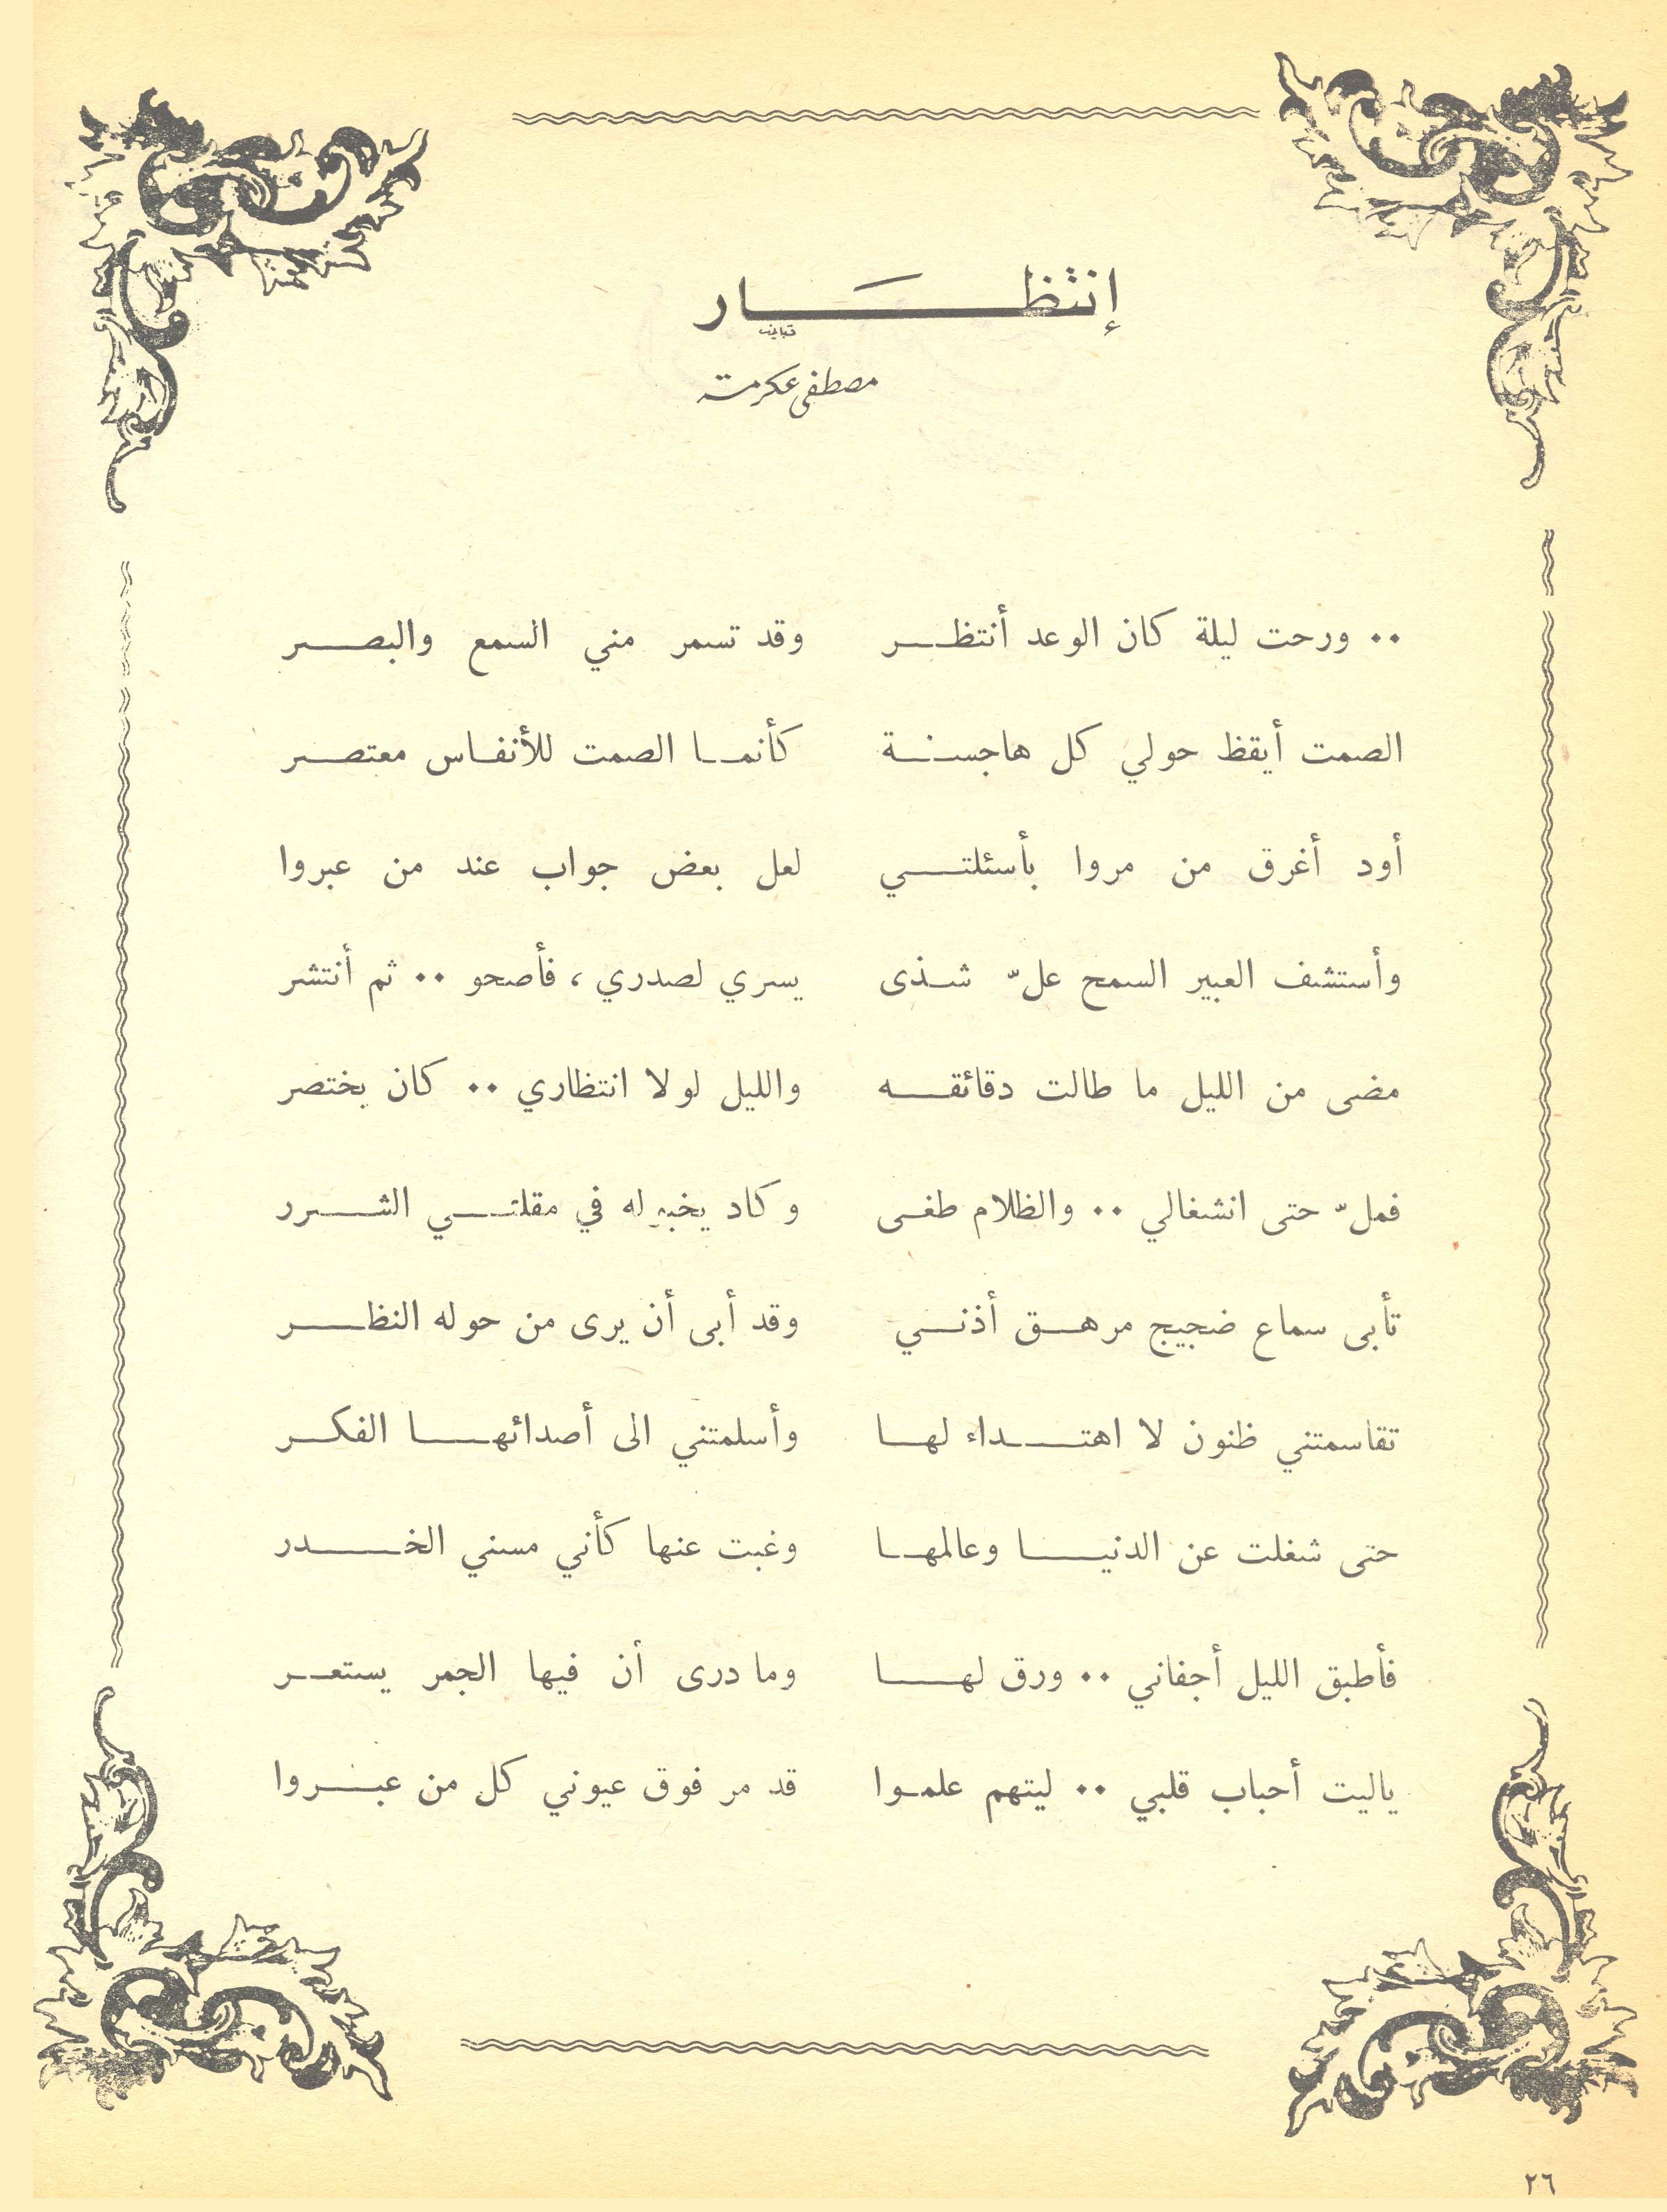 إنتظار
مصطفى عكرمة
.. ورحت ليلة كان الوعد أنتظر وقد تسمر مني السمع والبصر
الصمت أيقظ حولي كل هاجسنة كأنما الصمت للأنفاس معتصر
أود أغرق من مروا بأسئلتي لعل بعض جواب عند من عبروا
وأستشف العبير السمح علّ شذى يسري لصدري ، فأصحو .. ثم أنتشر
مضى من الليل ما طالت دقائقه والليل لولا انتظاري .. كان يختصر
فملّ حتى انشغالي .. والظلام طغى وكاد يخبو له في مقلتي الشرر
تأبى سماع ضجيج مرهق أذني وقد أبى أن يرى من حوله النظر
تقاسمتني ظنون لا اهتداء لها وأسلمتني الى أصدائها الفكر
حتى شغلت عن الدنيا وعالمها وغبت عنها كأني مسني الخدر
فأطبق الليل أجفاني .. ورق لها وما درى أن فيها الجمر يستعر
ياليت أحباب قلبي .. ليتهم علموا قد مر فوق عيوني كل من عبروا
٢٦